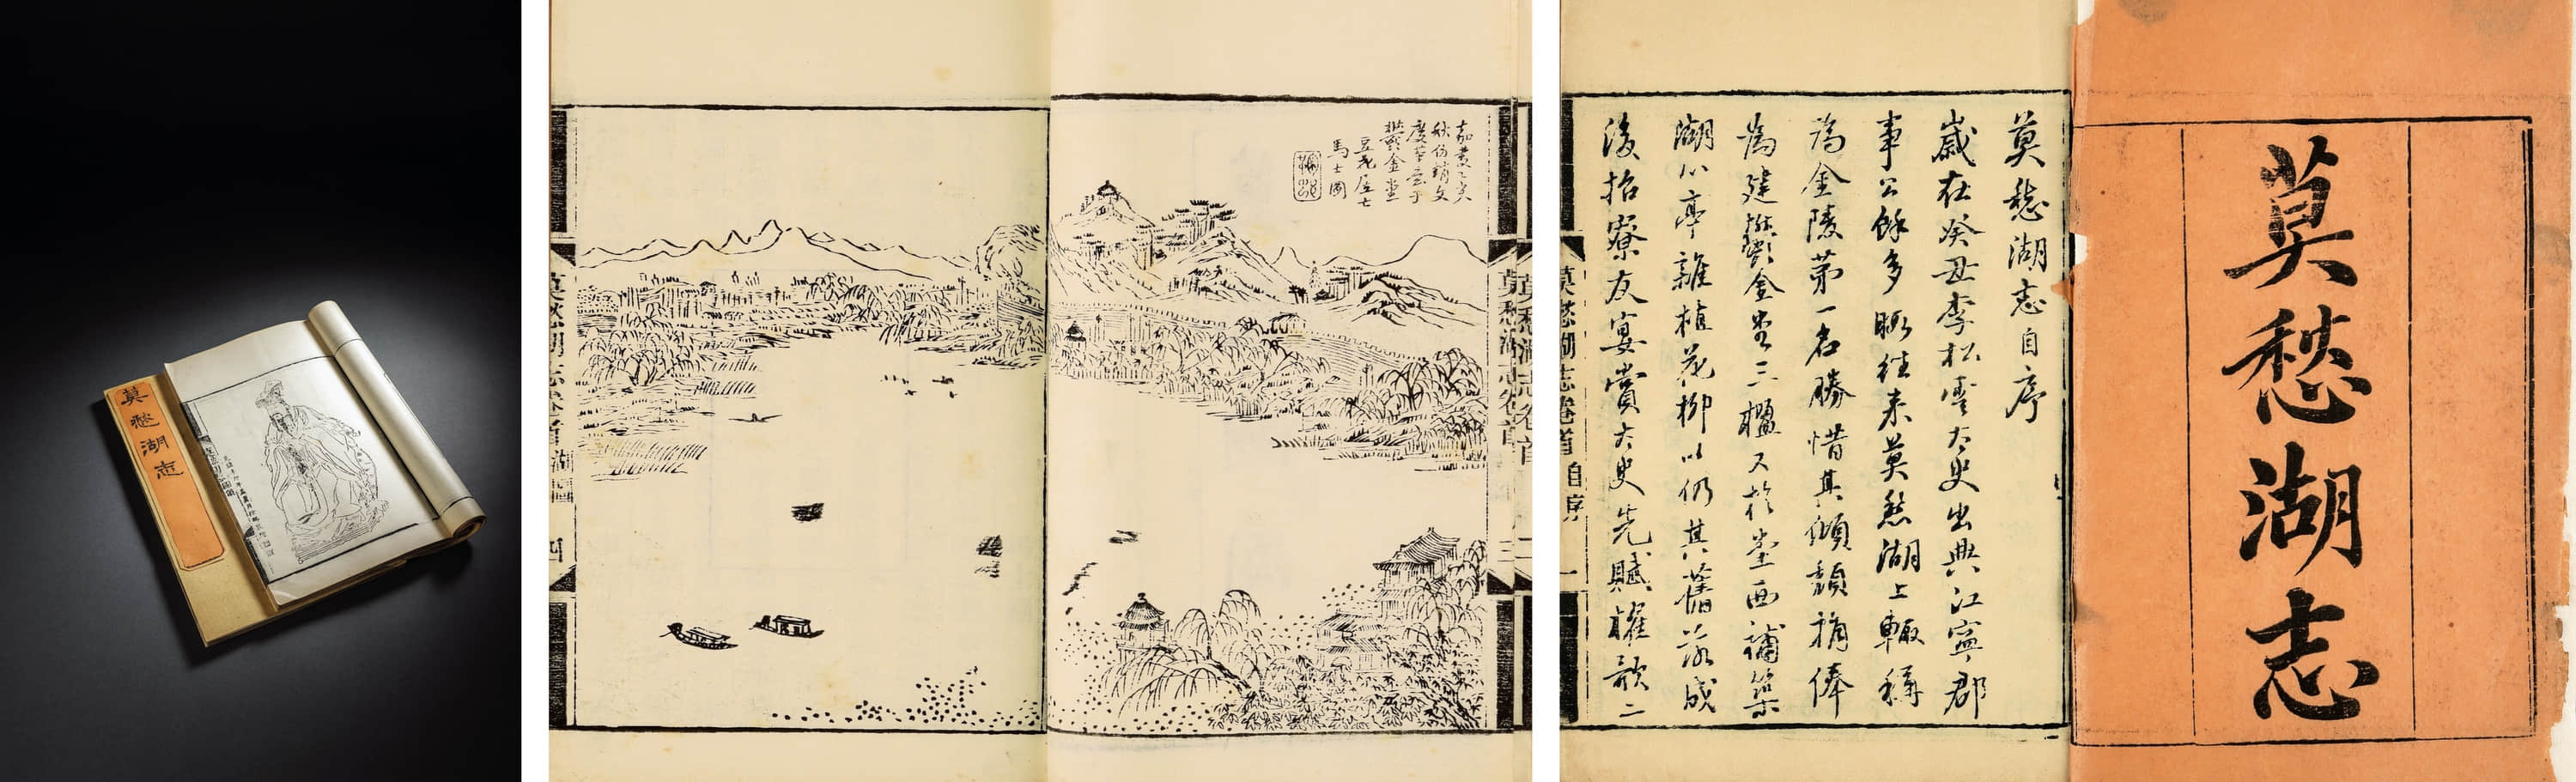 莫愁湖志
嘉慶乙亥
秋仿趙文
度筆意于
鬱金堂
豆花居士
馬士圖
莫愁湖志卷首
三
莫愁湖志卷首 湖圖
四
莫愁湖志
莫愁湖志自序
歲在癸丑李松雲太史出典江寧郡
事公餘多暇往來莫愁湖上輒稱
為金陵第一名勝惜其傾頹捐俸
為建鬱金堂三楹又於堂西補築
湖心亭雜植花柳以仍其舊落成
後招寮友宴賞太史先賦櫂歌二
莫愁湖志卷首 自序
一